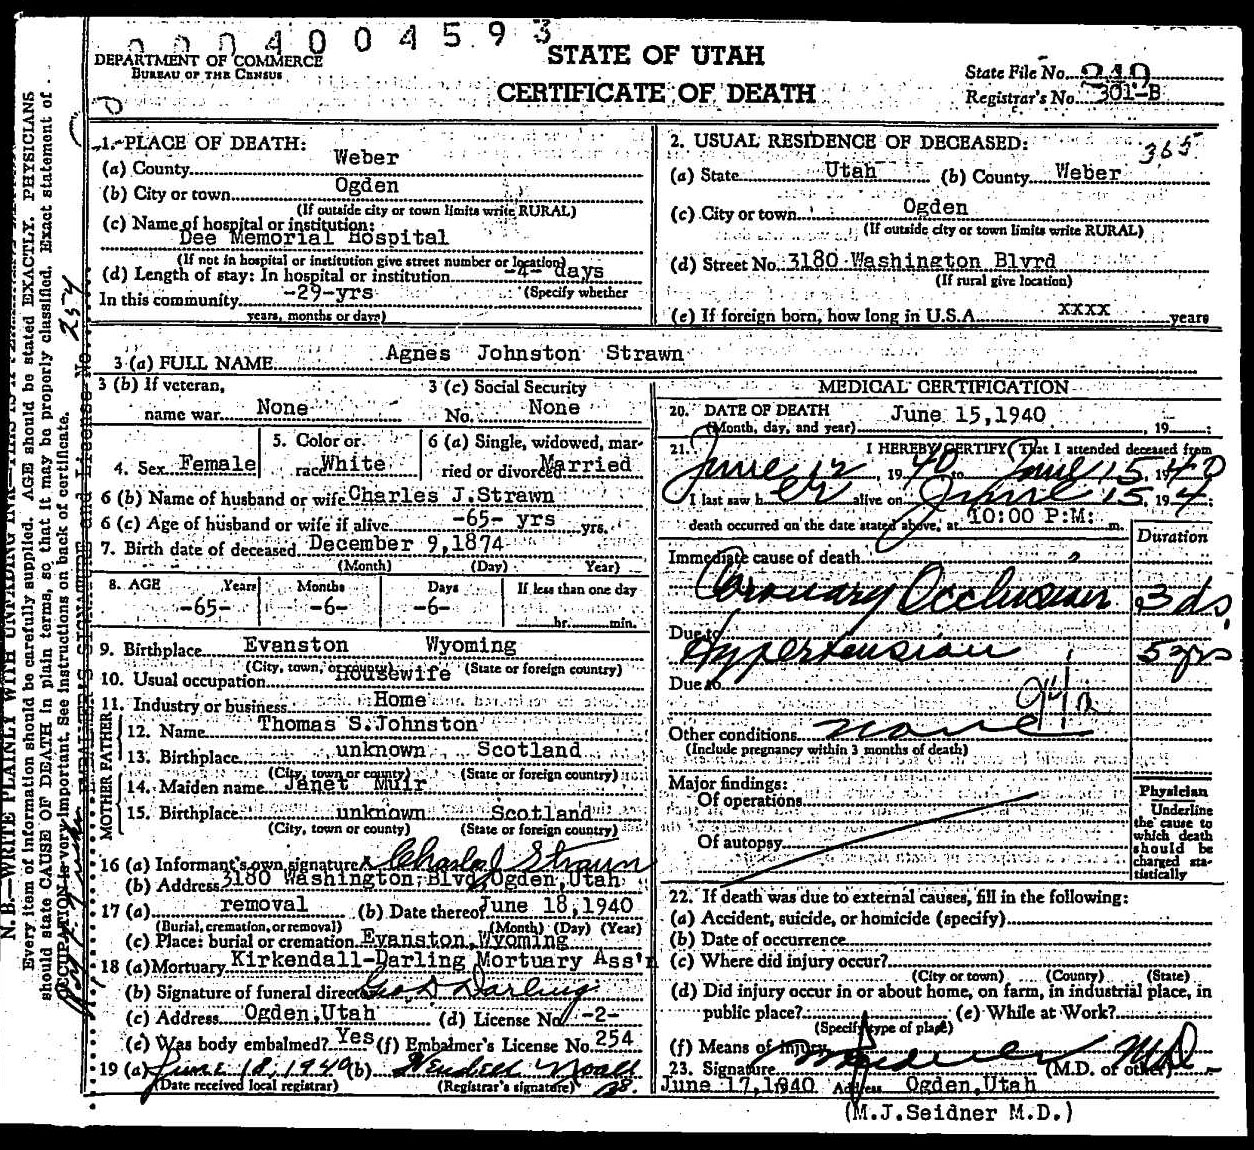 0004004593
DEPARTMENT OF COMMERCE
BUREAU OF THE CENSUS
STATE OF UTAH
CERTIFICATE OF DEATH
State File No. 249
Registrar's No. 301-B
1. PLACE OF DEATH:
(a) County Weber
(b) City or town Ogden
(If outside city or town limits write RURAL)
(c) Name of hospital or institution:
Dee Memorial Hospital
(If not in hospital or institution give street number or location)
(d) Length of stay: In hospital or institution -4- days
(Specify whether
In this community -29-yrs
years, months or days)
2. USUAL RESIDENCE OF DECEASED: 365
(a) State Utah (b) County Weber
(c) City or town Ogden
(If outside city or town limits write RURAL)
(d) Street No. 3180 Washington Blvrd
(If rural give location)
(e) If foreign born, how long in U.S.A. xxxx years
3 (a) FULL NAME Agnes Johnston Strawn
3 (b) If veteran,
name war None
3 (c) Social Security
No. None
4. Sex Female
5. Color or
race White
6 (a) Single, widowed, mar-
ried or divorced Married
6 (b) Name of husband or wife Charles J.Strawn
6 (c) Age of husband or wife if alive -65- yrs yrs.
7. Birth date of deceased December 9,1874
(Month) (Day) Year)
8. AGE Years Months Days If less than one day
-65- -6- -6- hr. min.
9. Birthplace Evanston Wyoming
(City, town, or county) (State or foreign country)
10. Usual occupation Housewife
11. Industry or business Home
FATHER
12. Name Thomas S.Johnston
13. Birthplace unknown Scotland
(City, town or county) (State or foreign country)
MOTHER
14. Maiden name Janet Muir
15. Birthplace unknown Scotland
(City, town or county) (State or foreign country)
16 (a) Informant's own signature x Charles J Strawn
(b) Address 3180 Washington,Blvd,Ogden,Utah
17 (a) removal (b) Date thereof June 18,1940
(Burial, cremation, or removal) (Month) (Day) (Year)
(c) Place: burial or cremation Evanston,Wyoming
18 (a) Mortuary Kirkendall-Darling Mortuary Ass'n
(b) Signature of funeral director Geo D Darling
(c) Address Ogden,Utah (d) License No. -2-
(e) Was body embalmed? Yes (f) Embalmer's License No. 254
19 (a) June 18, 1940 (b) Wendell Noall
(Date received local registrar) (Registrar's signature)
MEDICAL CERTIFICATION
20. DATE OF DEATH June 15,1940
(Month, day, and year) , 19 ;
21. I HEREBY CERTIFY That I attended deceased from
June 12, 1940 to June 15 1940
I last saw her alive on June 15, 194 ;
death occurred on the date stated above, at 10:00 P:M: m.
Duration
Immediate cause of death
Coronary Occlusion 3 ds.
Due to
Hypertension 5 yrs
Due to
94a
Other conditions none
(Include pregnancy within 3 months of death)
Major findings:
Of operations
Of autopsy
Physician
Underline
the cause to
which death
should be
charged sta-
tistically
22. If death was due to external causes, fill in the following:
(a) Accident, suicide, or homicide (specify)
(b) Date of occurrence
(c) Where did injury occur?
(City or town) (County) (State)
(d) Did injury occur in or about home, on farm, in industrial place, in
public place? (e) While at Work?
(Specify type of place)
(f) Means of injury
23. Signature M J Seidner MD
(M.D. or other)
June 17,1940 Address Ogden,Utah
(M.J.Seidner M.D.)
N. B.—WRITE PLAINLY WITH UNFADING INK—THIS IS A PERMANENT
Every item of information should be carefully supplied. AGE should be stated EXACTLY. PHYSICIANS
should state CAUSE OF DEATH in plain terms, so that it may be properly classified. Exact statement of
OCCUPATION is very important. See instructions on back of certificate.
EMBALMER'S SIGNATURE and License No. 254